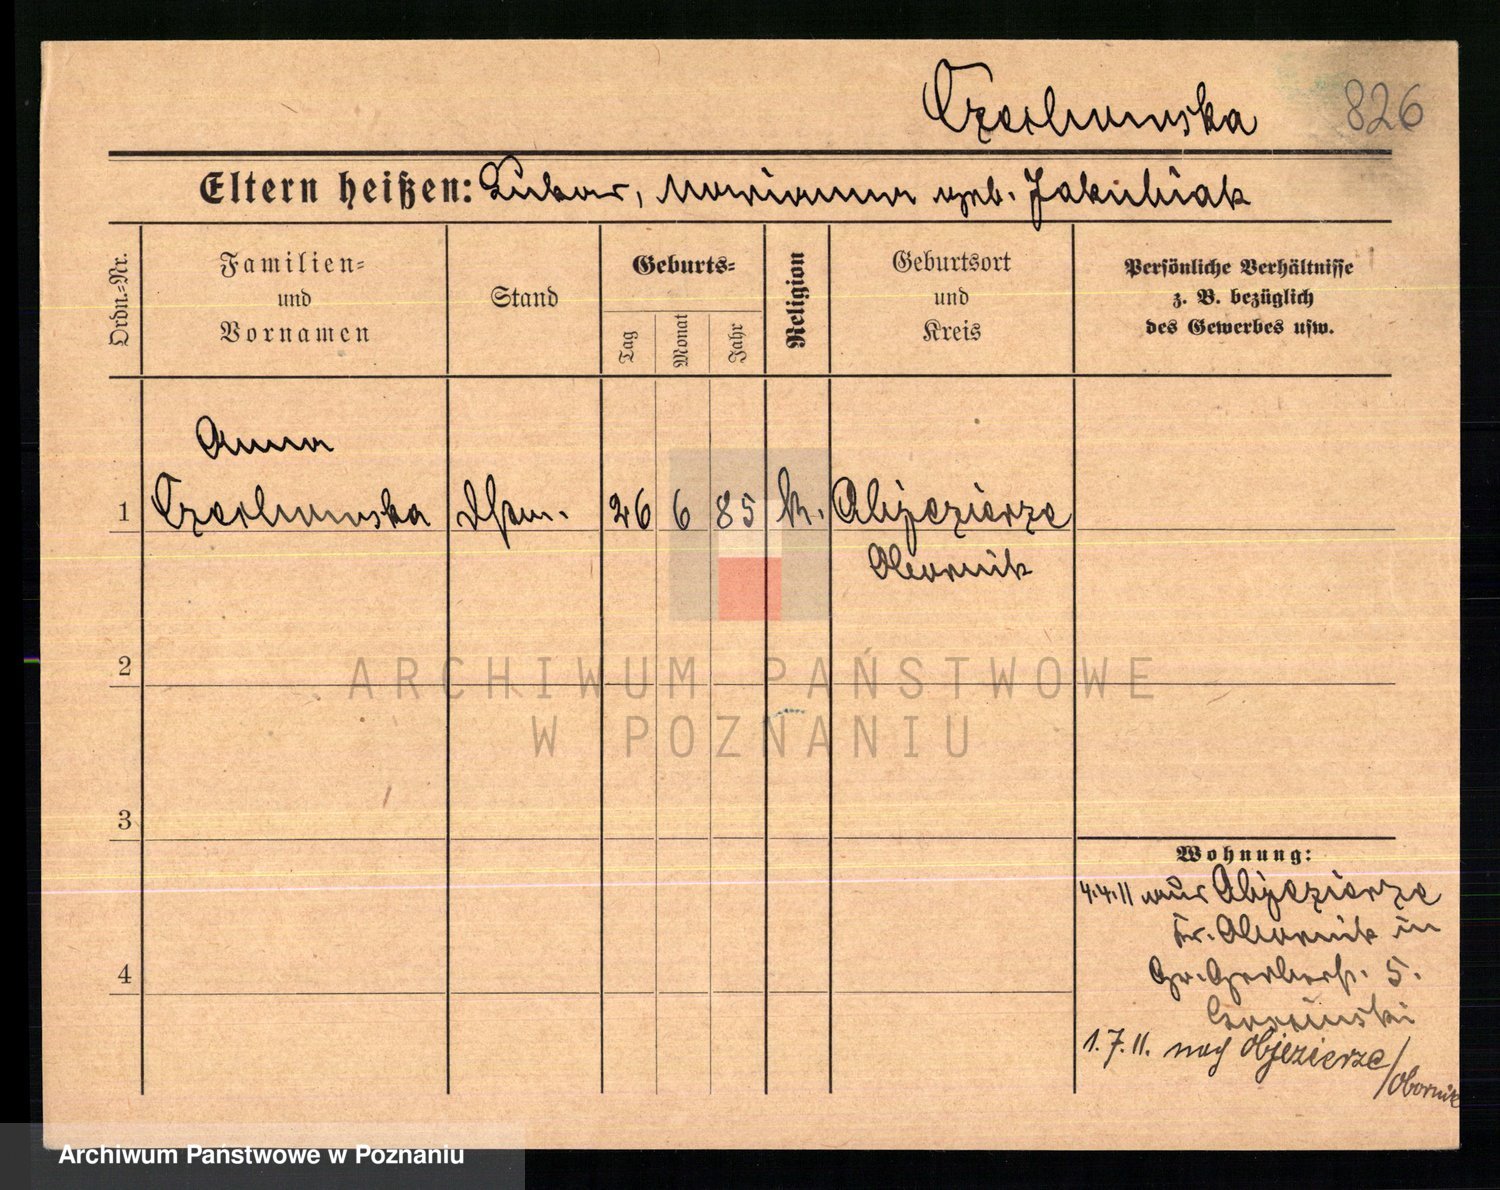 Czochowska 826
Eltern heißen: Lukas, Marianna geb. Jakubiak
Ordn.-Nr.
Familien-
und
Vornamen
Stand
Geburts-
Tag
Monat
Jahr
Religion
Geburtsort
und
Kreis
Persönliche Verhältnisse
z. B. bezüglich
des Gewerbes usw.
Anna
1 26 6 85 k. Objezierze
Obornik
2
3
4
Wohnung:
4.4.11 aus Objezierze
Kr. Obornik in
Gr. Gerberstr. 5.
1.7.11. nach Objezierze/Obornik
ARCHIWUM PAŃSTWOWE
W POZNANIU
Archiwum Państwowe w Poznaniu